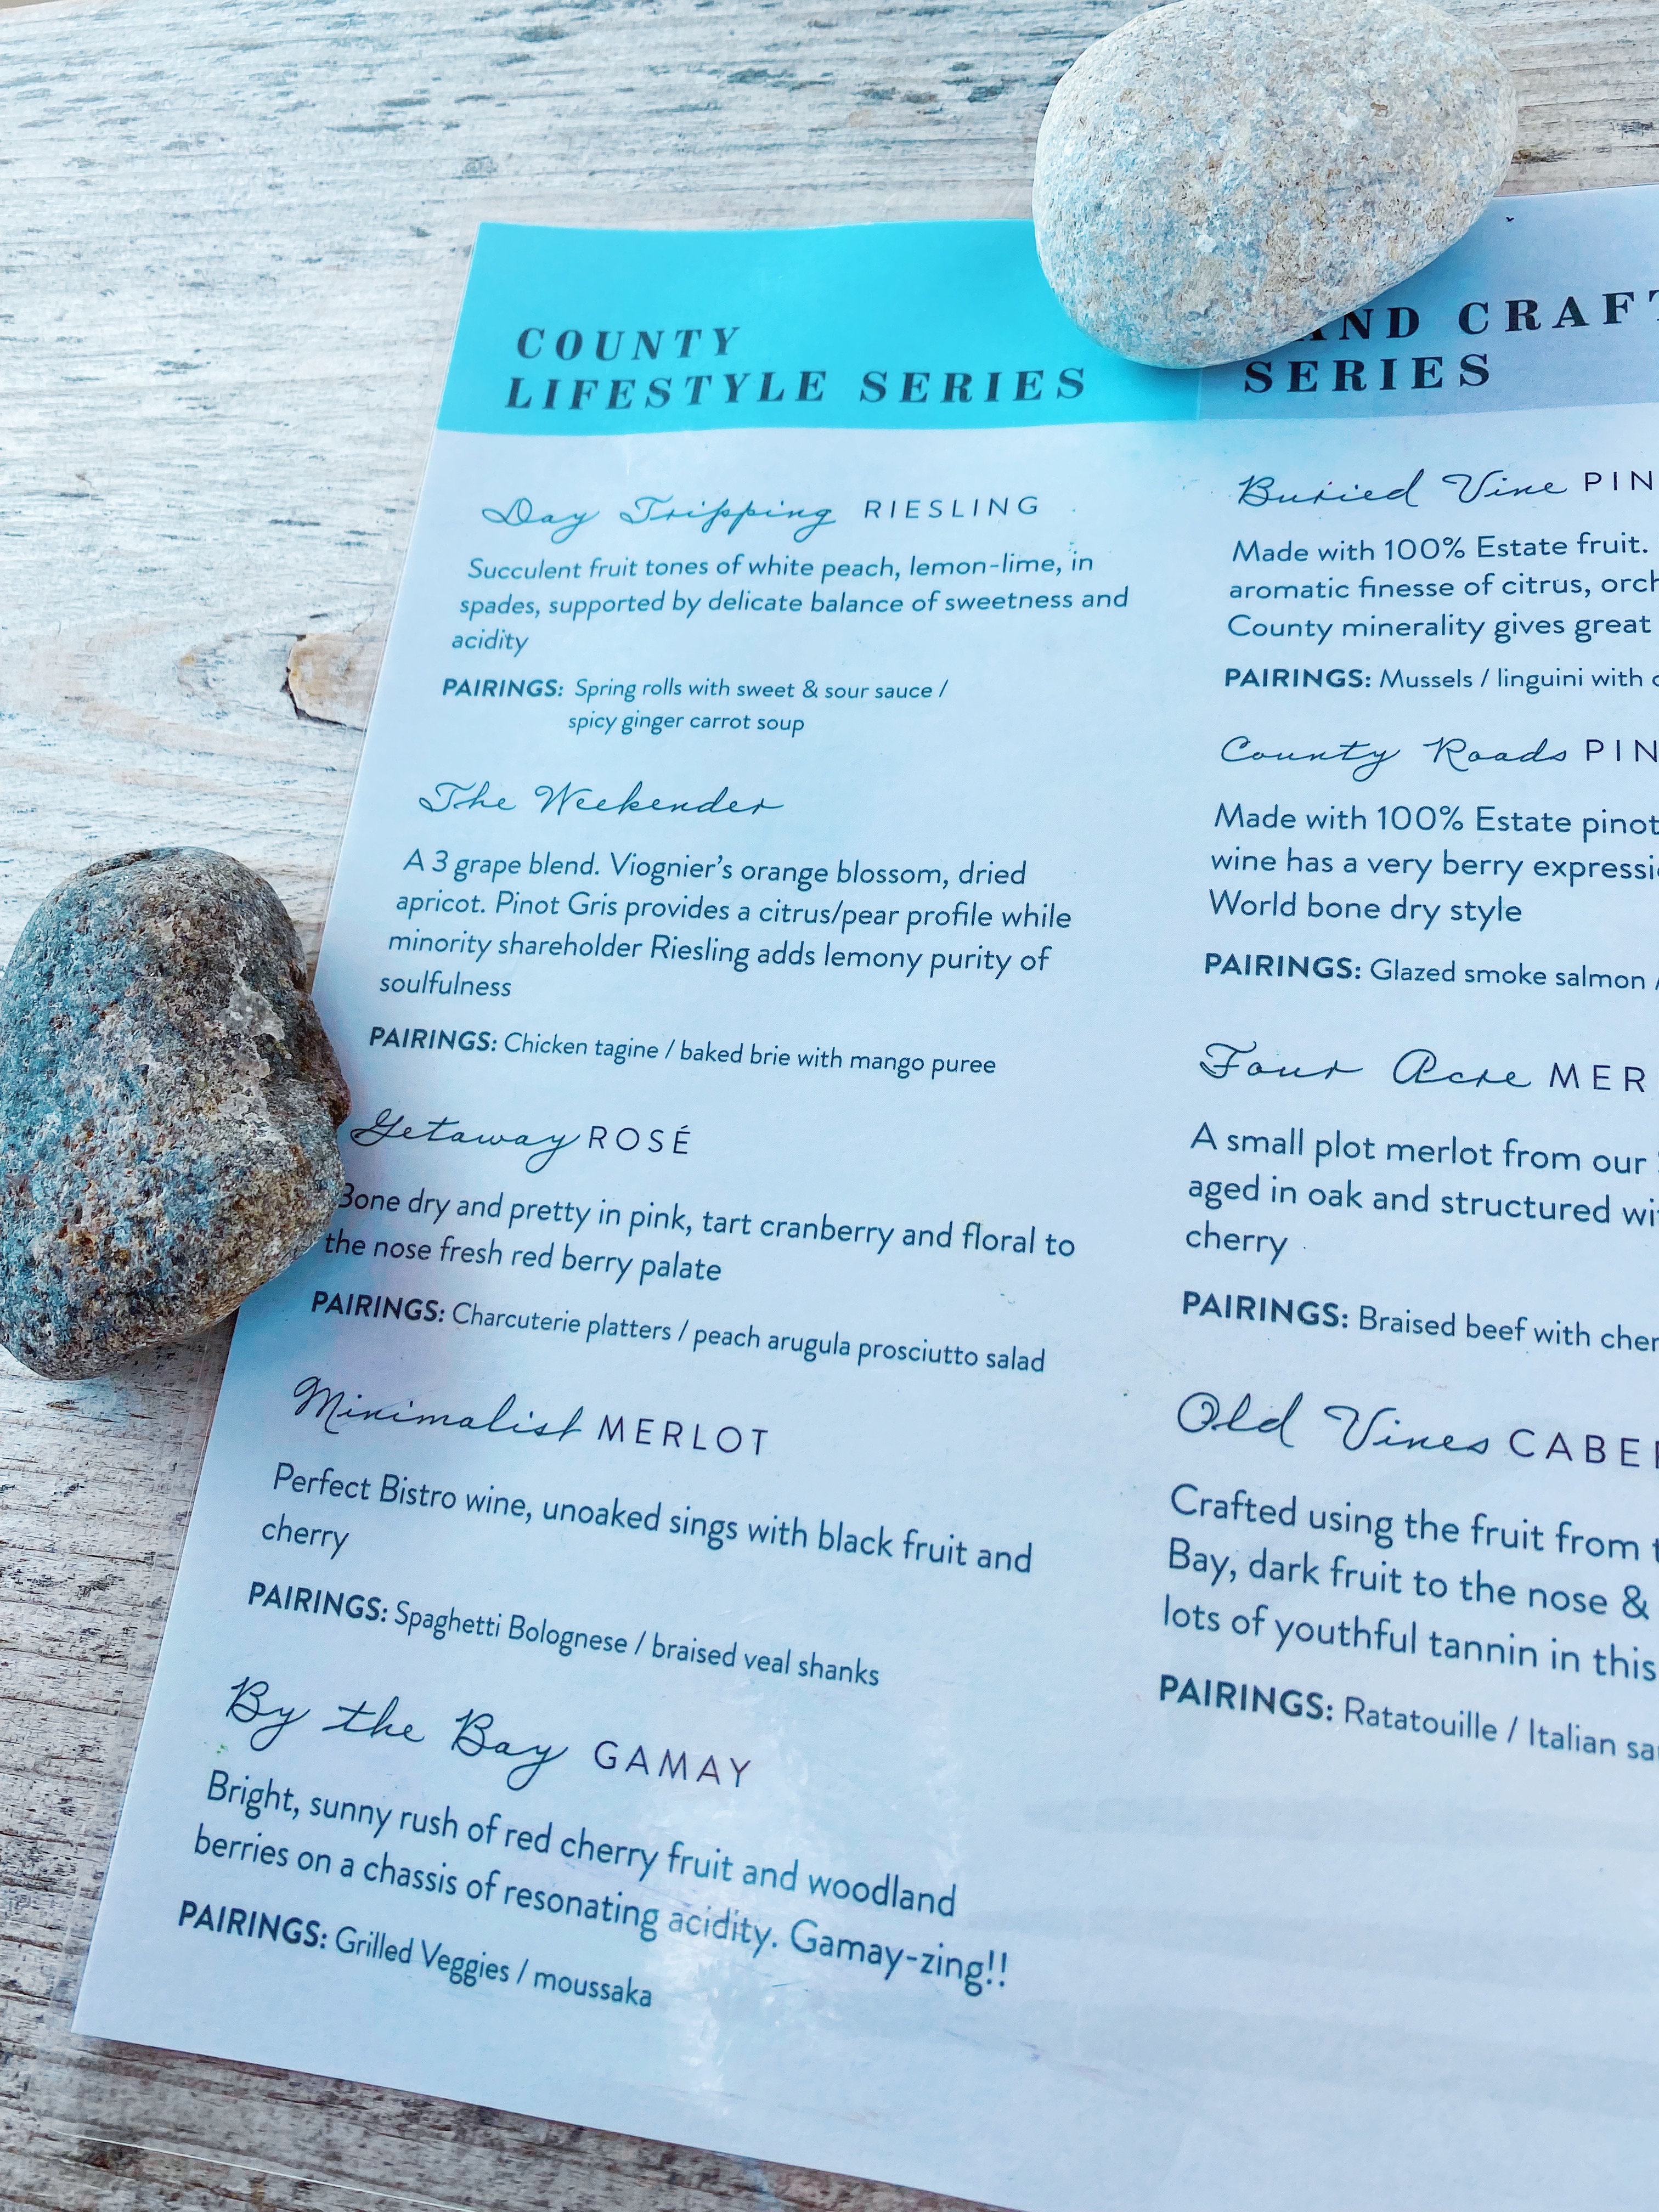 COUNTY
LIFESTYLE SERIES
Day Tripping RIESLING
Succulent fruit tones of white peach, lemon-lime, in
spades, supported by delicate balance of sweetness and
acidity
PAIRINGS: Spring rolls with sweet & sour sauce /
spicy ginger carrot soup
The Weekender
A 3 grape blend. Viognier's orange blossom, dried
apricot. Pinot Gris provides a citrus/pear profile while
minority shareholder Riesling adds lemony purity of
soulfulness
PAIRINGS: Chicken tagine / baked brie with mango puree
Getaway ROSÉ
Bone dry and pretty in pink, tart cranberry and floral to
the nose fresh red berry palate
PAIRINGS: Charcuterie platters / peach arugula prosciutto salad
Minimalist MERLOT
Perfect Bistro wine, unoaked sings with black fruit and
cherry
PAIRINGS: Spaghetti Bolognese / braised veal shanks
By the Bay GAMAY
Bright, sunny rush of red cherry fruit and woodland
berries on a chassis of resonating acidity. Gamay-zing!!
PAIRINGS: Grilled Veggies / moussaka
SERIES
Buried Vine
Made with 100% Estate fruit.
aromatic finesse of citrus,
County minerality gives great
PAIRINGS: Mussels / linguini with
County Roads
Made with 100% Estate pinot
wine has a very berry
World bone dry style
PAIRINGS: Glazed smoke salmon /
Four Acre
A small plot merlot from our
aged in oak and structured
cherry
PAIRINGS: Braised beef with
Old Vines
Crafted using the fruit from
Bay, dark fruit to the nose &
lots of youthful tannin in this
PAIRINGS: Ratatouille / Italian